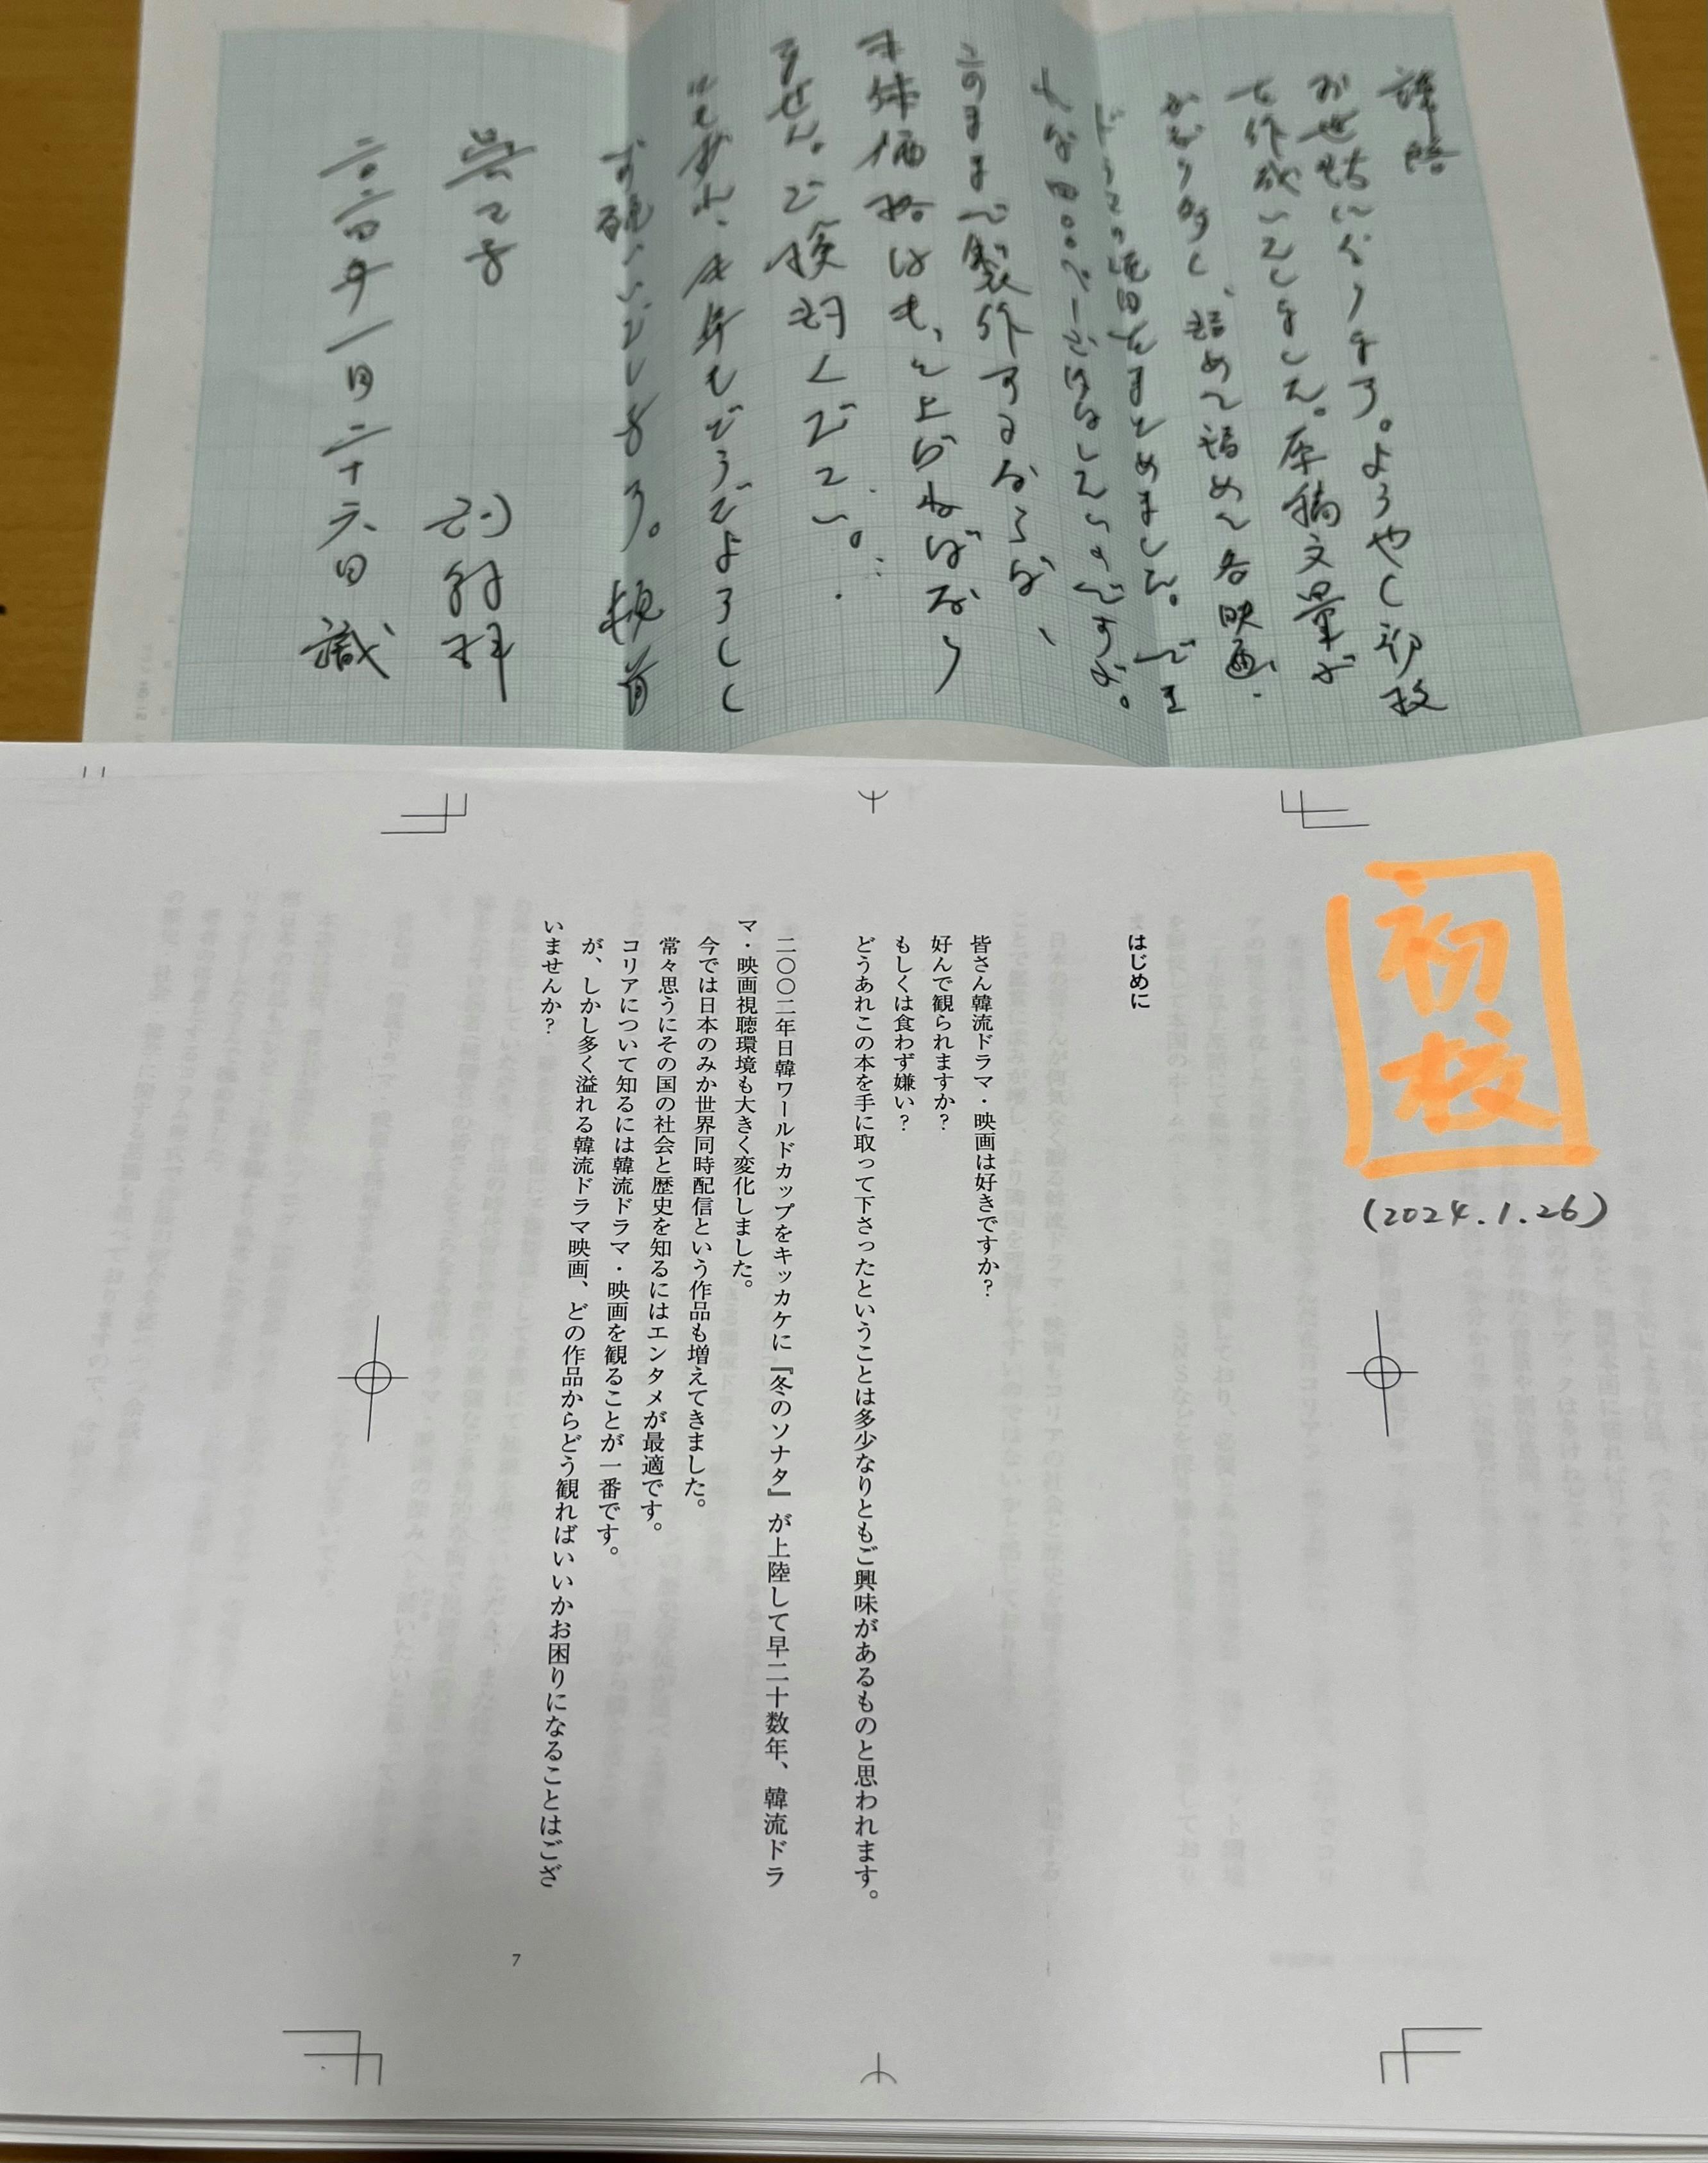 謹啓
お世話になります。ようやく初校
を作成いたしました。原稿文量が
かなり多く、詰めて詰めて各映画・
ドラマの境目をまとめました。で
このままで製作するならば、
本体価格はもっと上げねばなり
ません。ご検討ください。…
はもあれ、本年もどうぞよろしく
お願いいたします。
二〇二四年一月二十六日 識
初校
(2024.1.26)
はじめに
皆さん韓流ドラマ・映画は好きですか？
好んで観られますか？
もしくは食わず嫌い？
どうあれこの本を手に取って下さったということは多少なりともご興味があるものと思われます。
二〇〇二年日韓ワールドカップをキッカケに『冬のソナタ』が上陸して早二十数年、韓流ドラ
マ・映画視聴環境も大きく変化しました。
今では日本のみか世界同時配信という作品も増えてきました。
常々思うにその国の社会と歴史を知るにはエンタメが最適です。
コリアについて知るには韓流ドラマ・映画を観ることが一番です。
が、しかし多く溢れる韓流ドラマ映画、どの作品からどう観ればいいかお困りになることはござ
いませんか？
7